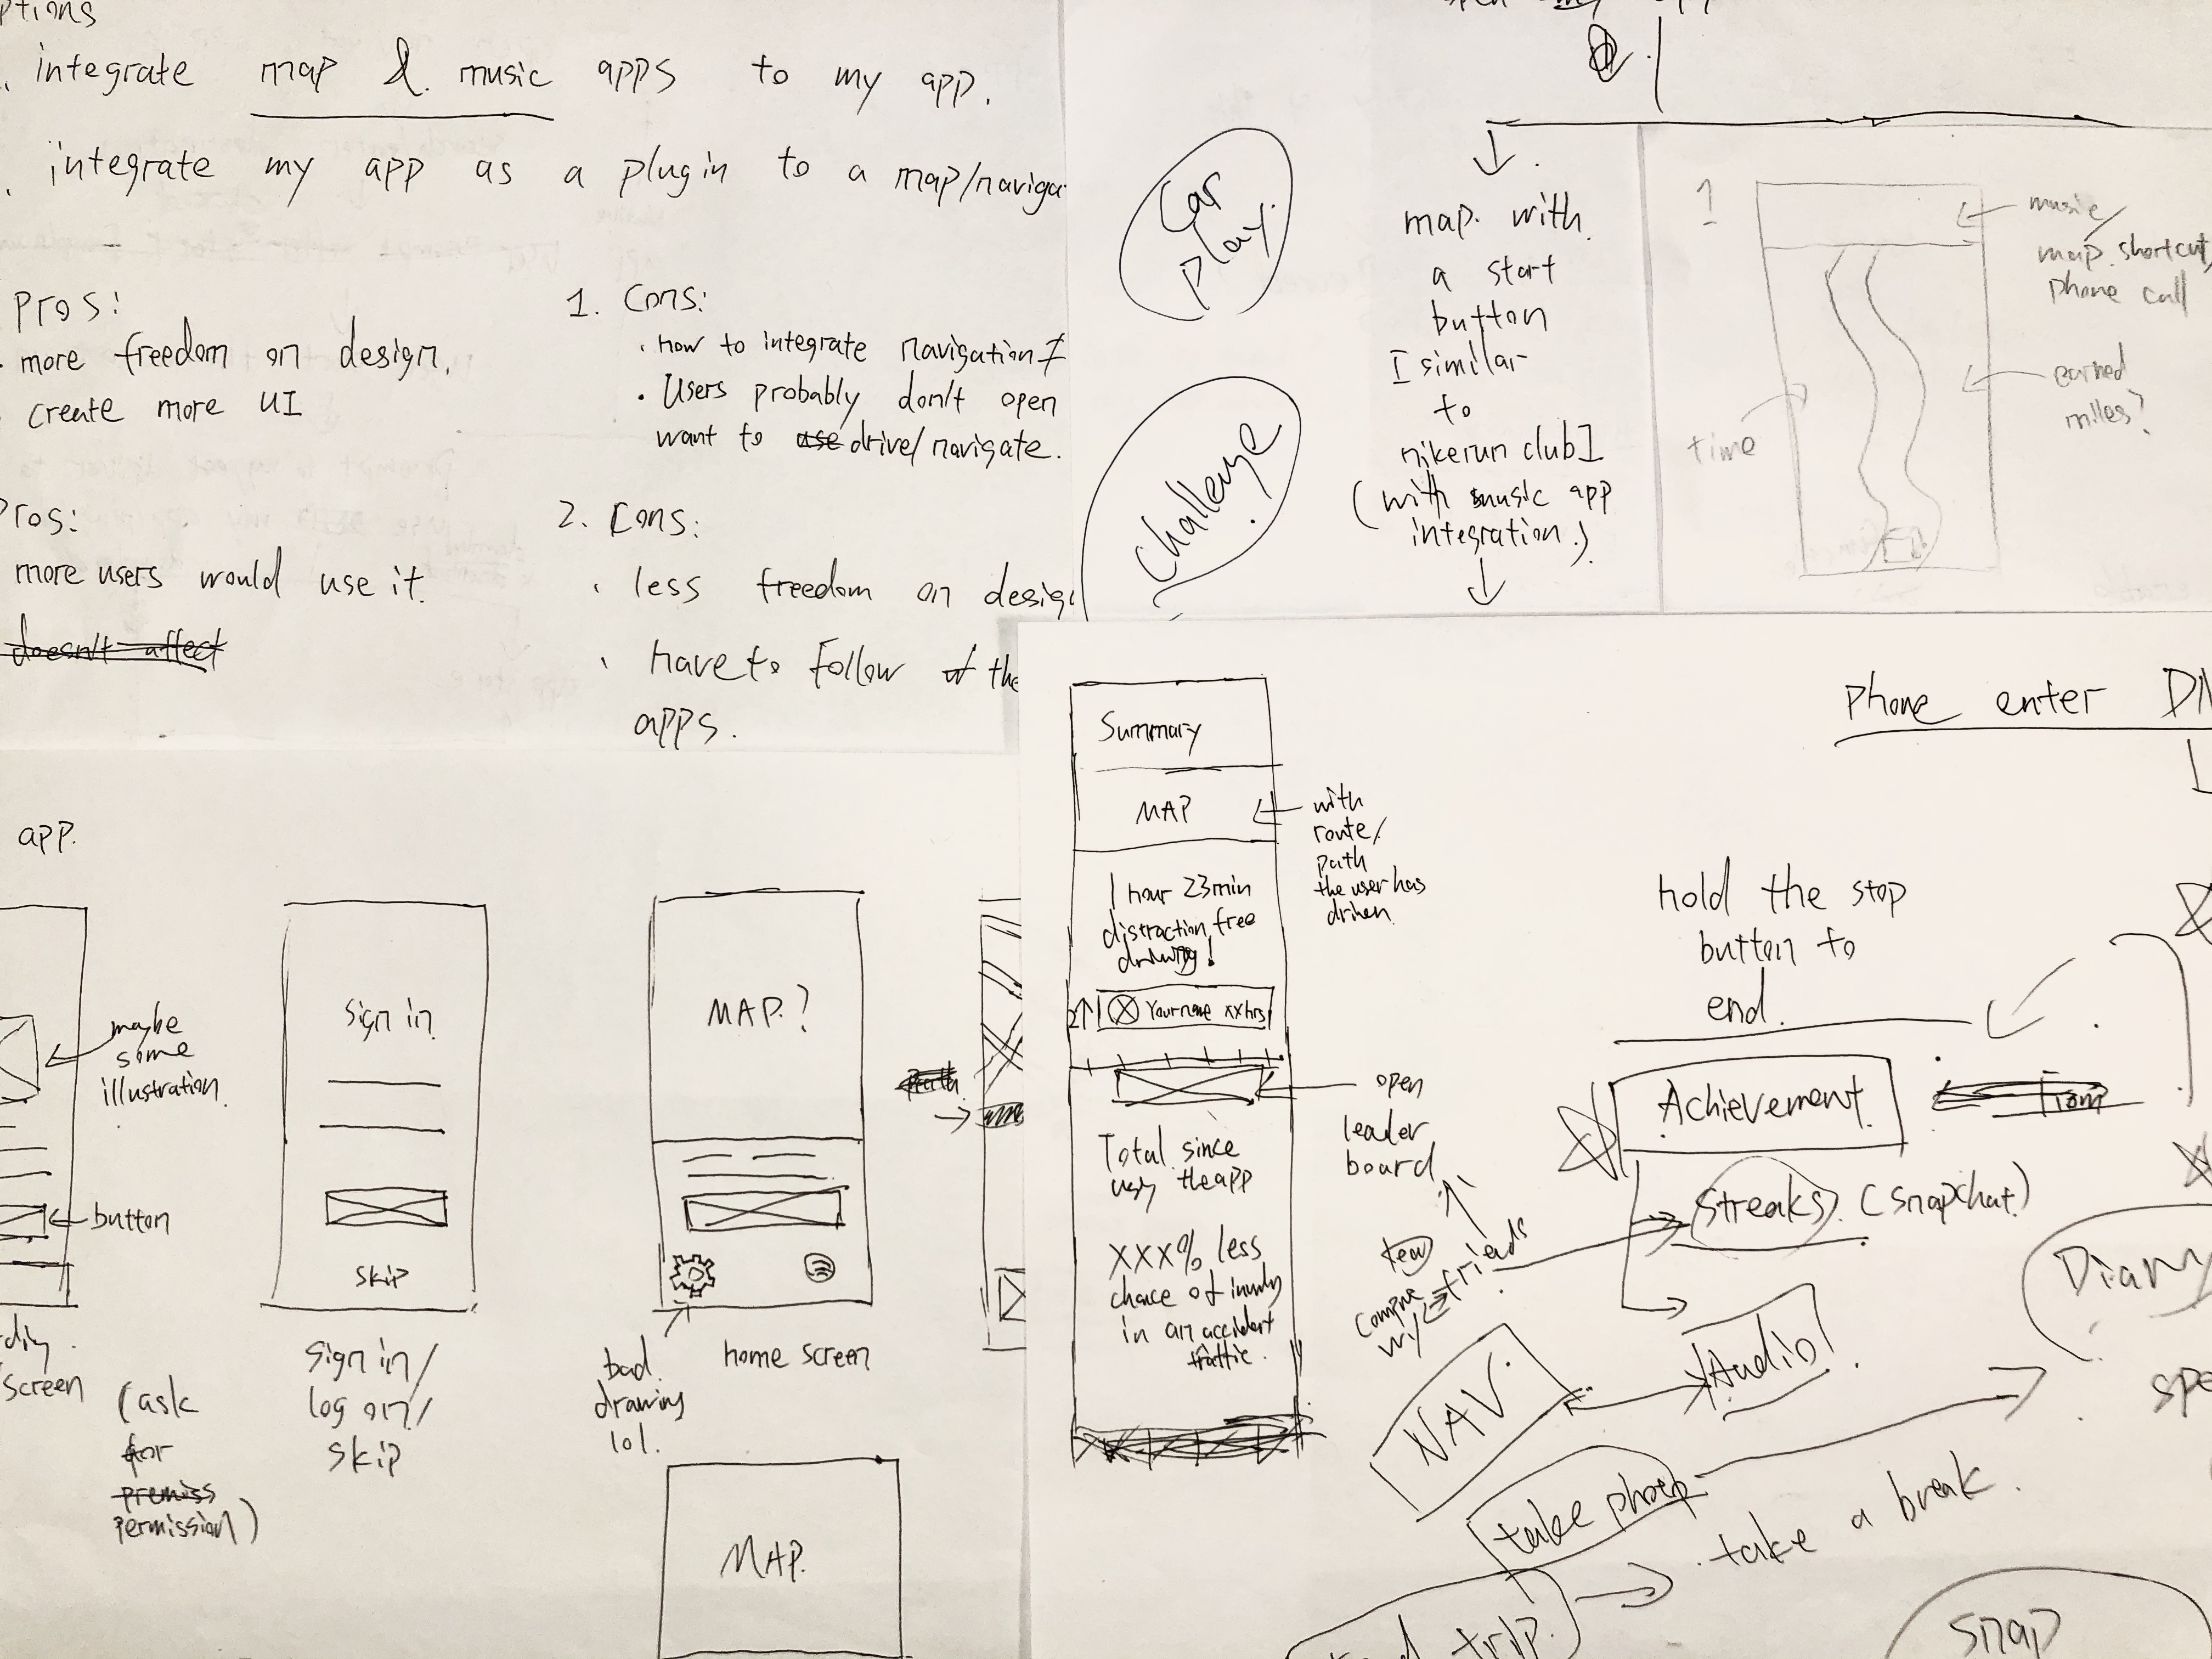 integrate map & music apps to my app.
integrate my app as a plugin to a map/naviga
Pros:
more freedom on design.
create more UI
1. Cons:
· how to integrate navigation
· Users probably don't open
want to use drive/navigate.
Pros:
more users would use it.
doesn't affect
2. Cons:
less freedom on design
have to follow the
apps.
Car
play.
Challenge
map with
a start
button
[similar
to
nikerun club]
(with music app
integration.)
1
music/
map shortcut,
phone call
earned
miles?
time
app.
maybe
some
illustration.
button
screen
(ask
for
premiss
permission)
Sign in
skip
Sign in/
log on/
skip
MAP?
bad
drawing
lol.
home screen
Path
MAP.
Summary
MAP
with
route/
path
the user has
driven.
1 hour 23min
distraction free
driving!
Your name xxhrs
open
leader
board
Total since
the app
XXX% less
chance of
in an accident
traffic.
phone enter
hold the stop
button to
end.
Achievement
from
Streaks (snapchat)
friends
Audio
NAV.
Diary
take photo
take a break.
trip.
snap